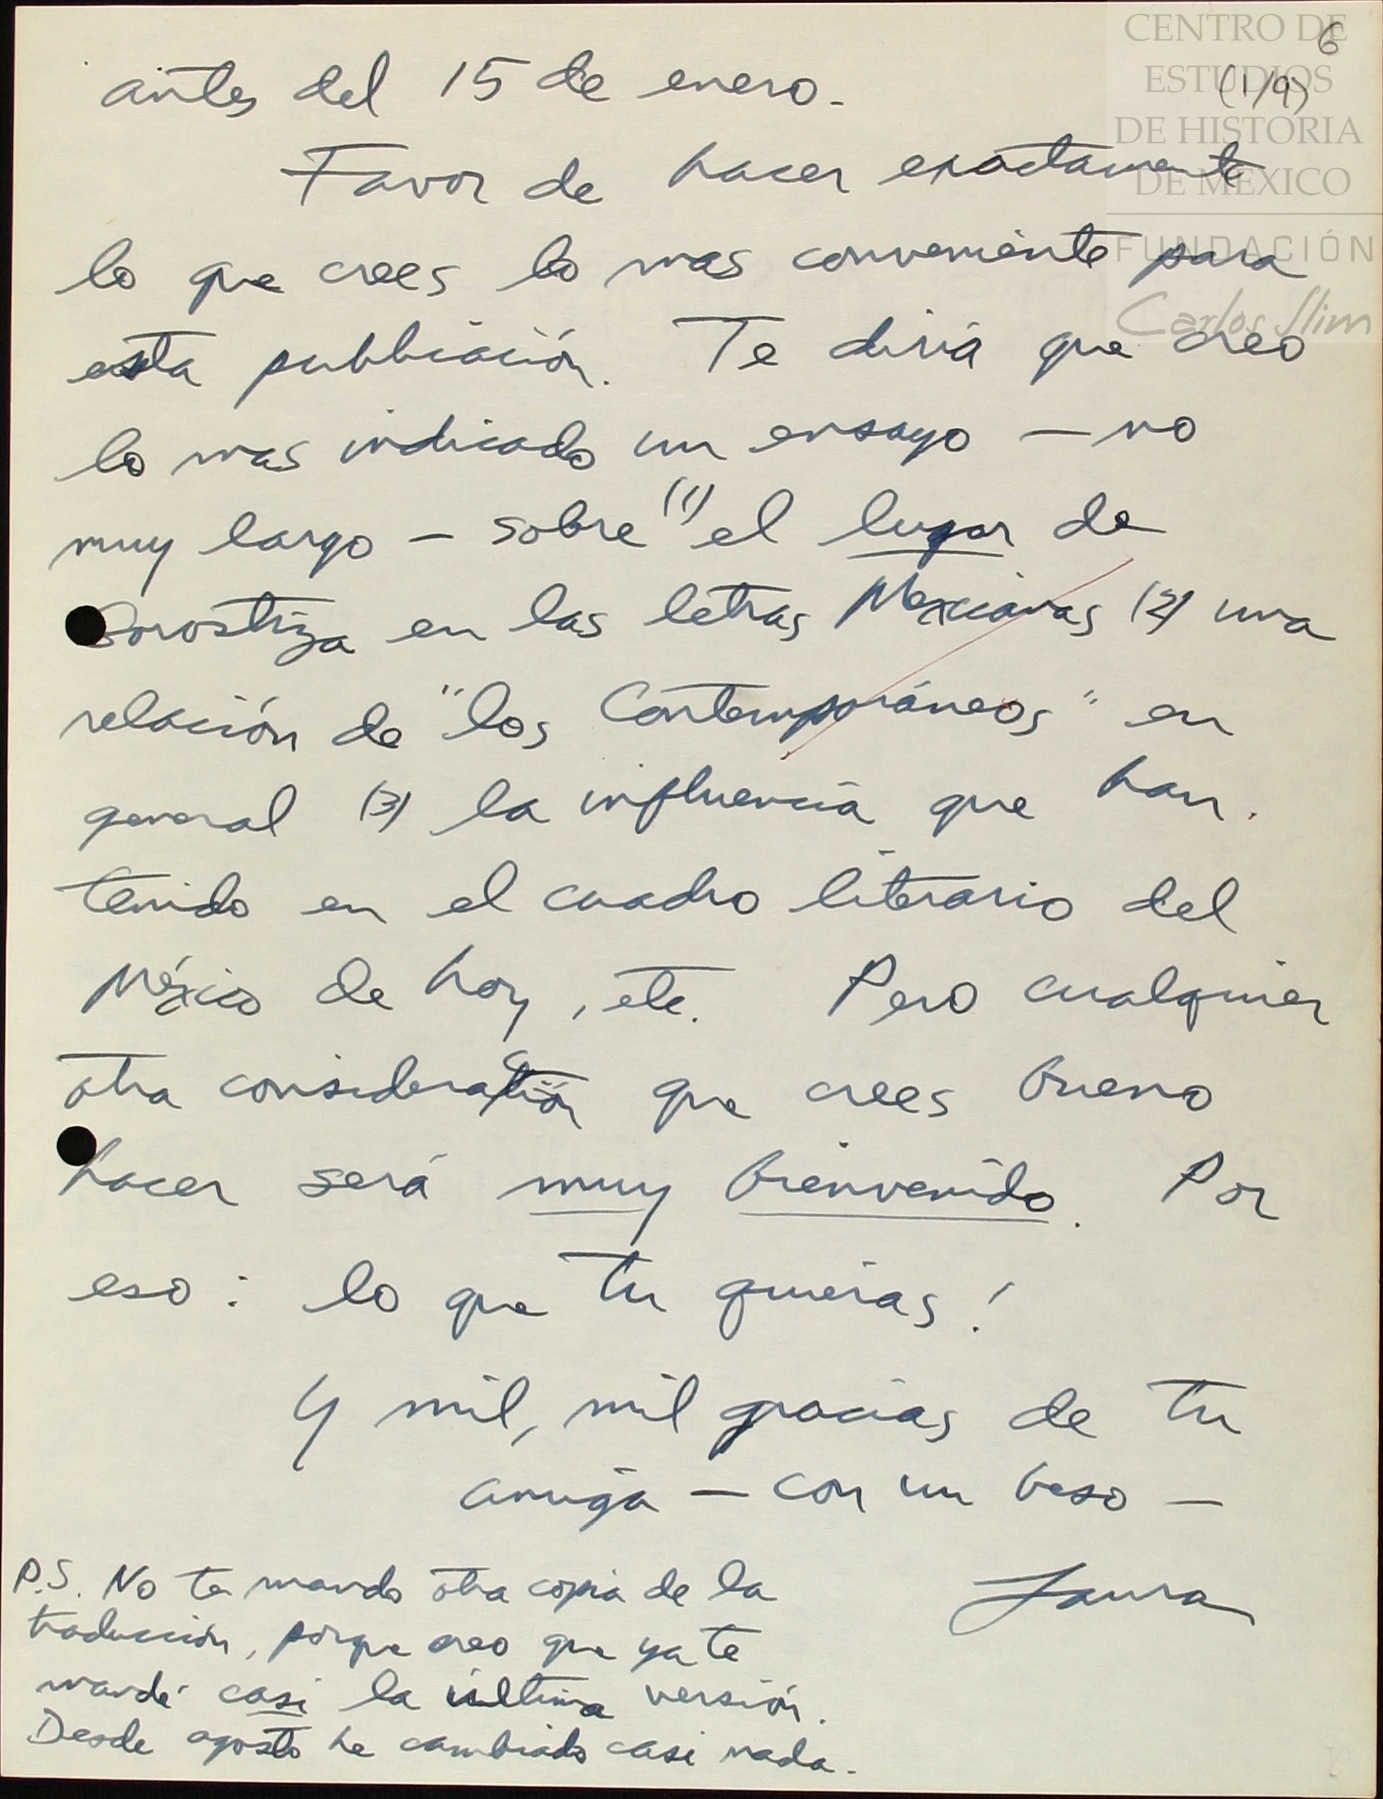 CENTRO DE
ESTUDIOS
DE HISTORIA
DE MEXICO
FUNDACIÓN
Carlos Slim
6
(1/9)
antes del 15 de enero.
Favor de hacer exactamente
lo que crees lo mas conveniente para
esta publicación. Te diría que creo
lo mas indicado un ensayo – no
muy largo – sobre (1) el lugar de
Gorostiza en las letras Mexicanas (2) una
relación de "los Contemporáneos" en
general (3) la influencia que han
tenido en el cuadro literario del
México de hoy, etc. Pero cualquier
otra consideración que crees bueno
hacer será muy bienvenido. Por
eso: lo que tu quieras!
Y mil, mil gracias de tu
amiga – con un beso –
Laura
P.S. No te mando otra copia de la
traducción, porque creo que ya te
mandé casi la última versión.
Desde agosto he cambiado casi nada.